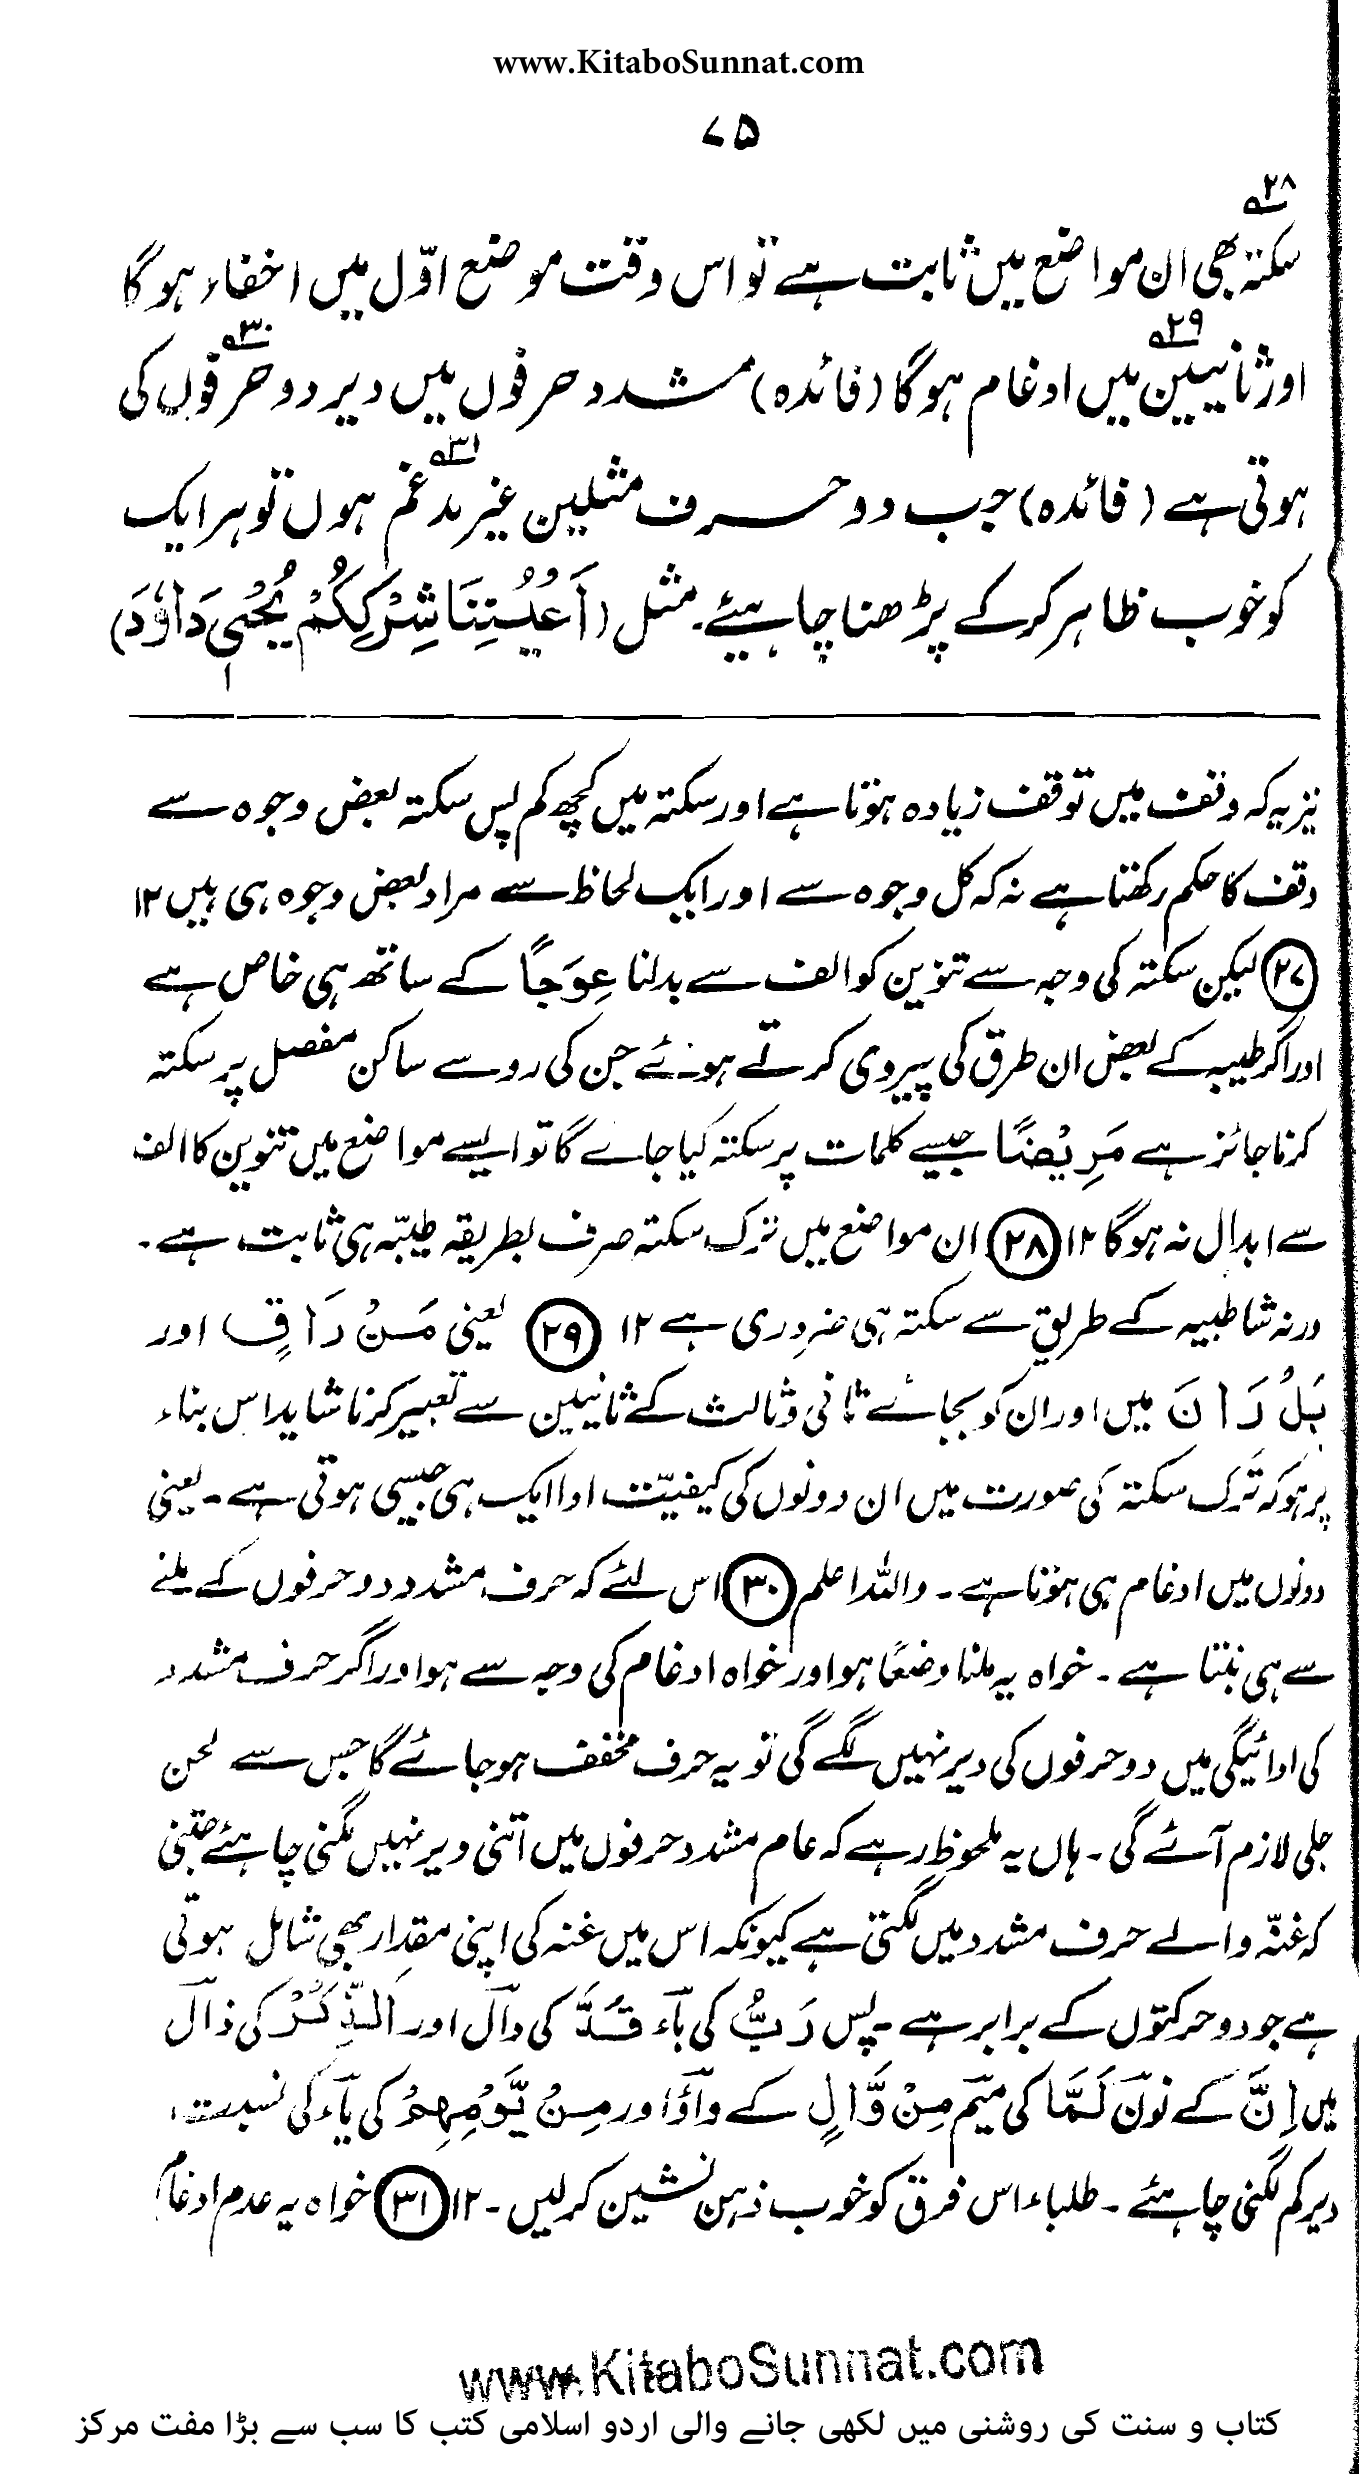 www.KitaboSunnat.com
۷۵
سکتہ۲۸ بھی ان مواضع میں ثابت ہے تو اس وقت موضع اوّل میں اخفاء ہوگا
اور ثانیین۲۹ میں ادغام ہوگا (فائدہ) مشدد حرفوں میں دیر دو حرفوں۳۰ کی
ہوتی ہے (فائدہ) جب دو حرف مثلین غیر مدغم۳۱ ہوں تو ہر ایک
کو خوب ظاہر کرکے پڑھنا چاہیئے۔ مثل (اَعْيُنِنَا شِرْكِكُمْ يُحْيٖ دَاوٗدَ)
نیز یہ کہ وقف میں توقف زیادہ ہوتا ہے اور سکتہ میں کچھ کم پس سکتہ بعض وجوہ سے
وقف کا حکم رکھتا ہے نہ کہ کل وجوہ سے اور ایک لحاظ سے مراد بعض وجوہ ہی ہیں ۱۲
۲۷ لیکن سکتہ کی وجہ سے تنوین کو الف سے بدلنا عِوَجًا کے ساتھ ہی خاص ہے
اور اگر طیبہ کے بعض ان طرق کی پیروی کرتے ہوئے جن کی رو سے ساکن مفصل پر سکتہ
کرنا جائز ہے مَرِيْضًا جیسے کلمات پر سکتہ کیا جائے گا تو ایسے مواضع میں تنوین کا الف
سے ابدال نہ ہوگا ۱۲ ۲۸ ان مواضع میں ترک سکتہ صرف بطریقہ طیّبہ ہی ثابت ہے۔
ورنہ شاطبیہ کے طریق سے سکتہ ہی ضروری ہے ۱۲ ۲۹ یعنی مَنْ رَاقٍ اور
بَلْ رَانَ میں اور ان کو بجائے ثانی و ثالث کے ثانیین سے تعبیر کرنا شاید اس بناء
پر ہو کہ ترک سکتہ کی صورت میں ان دونوں کی کیفیّت ادا ایک ہی جیسی ہوتی ہے۔ یعنی
دونوں میں ادغام ہی ہوتا ہے۔ واللہ اعلم ۳۰ اس لئے کہ حرف مشدد دو حرفوں کے ملنے
سے ہی بنتا ہے۔ خواہ یہ ملنا وضعًا ہو اور خواہ ادغام کی وجہ سے ہو اور اگر حرف مشدد
کی ادائیگی میں دو حرفوں کی دیر نہیں لگے گی تو یہ حرف مخفف ہوجائے گا جس سے لحن
جلی لازم آئے گی۔ ہاں یہ ملحوظ رہے کہ عام مشدد حرفوں میں اتنی دیر نہیں لگنی چاہئے جتنی
کہ غنّہ والے حرف مشدد میں لگتی ہے کیونکہ اس میں غنہ کی اپنی مقدار بھی شامل ہوتی
ہے جو دو حرکتوں کے برابر ہے۔ پس رَبُّ کی بآء قَدَّ کی دآل اور اَلذِّكْرُ کی ذآل
میں اِنَّ کے نوٓن لَمَّا کی میٓم مِنْ وَّالٍ کے وآؤ اور مِنْ يَّوْمِهِمْ کی یآء کی نسبت
دیر کم لگنی چاہئے۔ طلباء اس فرق کو خوب ذہن نشین کرلیں۔ ۱۲ ۳۱ خواہ یہ عدم ادغام
www.KitaboSunnat.com
کتاب و سنت کی روشنی میں لکھی جانے والی اردو اسلامی کتب کا سب سے بڑا مفت مرکز